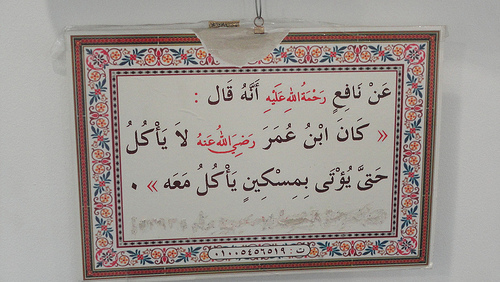 عَنْ نَافِعٍ رَحْمَةُ اللهِ عَلَيْهِ أَنَّهُ قَال :
« كَانَ ابْنُ عُمَرَ رَضِيَ اللهُ عَنْهُ لاَ يَأْكُلُ
حَتىَّ يُؤْتَى بِمِسْكِينٍ يَأْكُلُ مَعَه » .
ت : ٠١٠٠٥٤٥٦٥١٩